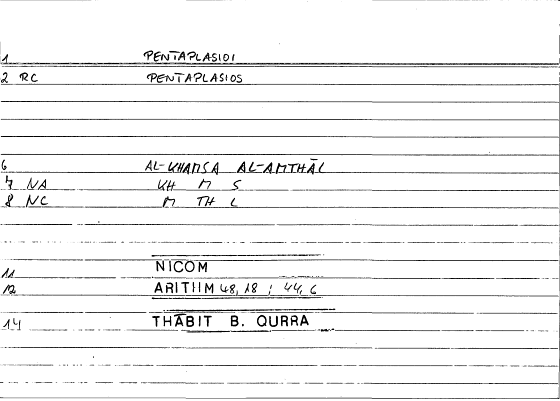 1 PENTAPLASIOI
2 RC PENTAPLASIOS
6 AL-KHAMSA AL-AMTHĀL
7 NA KH M S
8 NC M TH L
11 NICOM
12 ARITHM 48,18 ; 44,6
14 THĀBIT B. QURRA